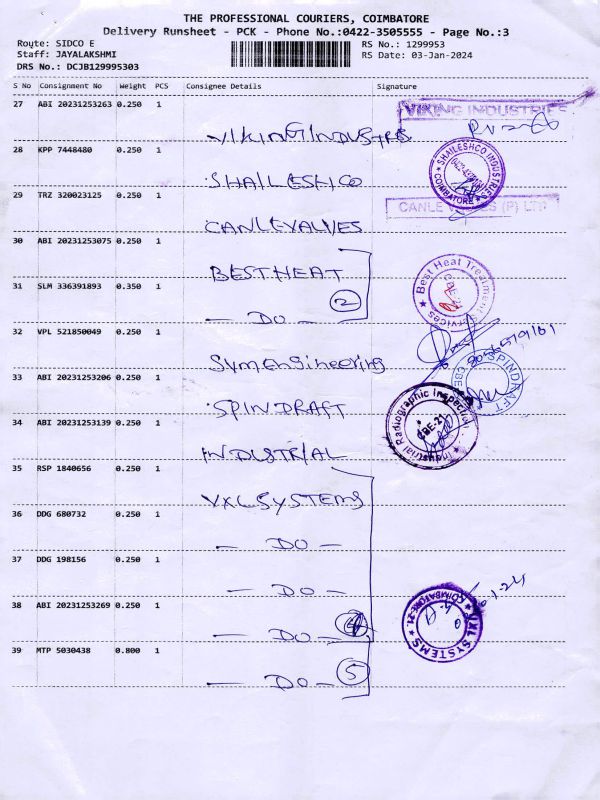 THE PROFESSIONAL COURIERS, COIMBATORE
Delivery Runsheet - PCK - Phone No.:0422-3505555 - Page No.:3
Route: SIDCO E
Staff: JAYALAKSHMI
DRS No.: DCJB129995303
RS No.: 1299953
RS Date: 03-Jan-2024
S No Consignment No Weight PCS Consignee Details Signature
27 ABI 20231253263 0.250 1
VIKING INDUSTRIES
VIKING INDUSTRES
28 KPP 7448480 0.250 1
SHAILESHCO INDUSTRIES
COIMBATORE
SHAILESHCO
29 TRZ 320023125 0.250 1
CANLE VALVES (P) LTD
CANLEVALVES
30 ABI 20231253075 0.250 1
BESTHEAT
Best Heat Treatment Services
CBE-21
31 SLM 336391893 0.350 1
2
— DO —
32 VPL 521850049 0.250 1
Symengineering
33 ABI 20231253206 0.250 1
SPINDRAFT
CBE
SPINDRAFT
34 ABI 20231253139 0.250 1
Industrial Radiographic Inspection
CBE-21
INDUSTRIAL
35 RSP 1840656 0.250 1
VXLSYSTEMS
36 DDG 680732 0.250 1
— DO —
37 DDG 198156 0.250 1
— DO —
38 ABI 20231253269 0.250 1
VXL SYSTEMS
COIMBATORE-21.
— DO — 4
39 MTP 5030438 0.800 1
— DO — 5